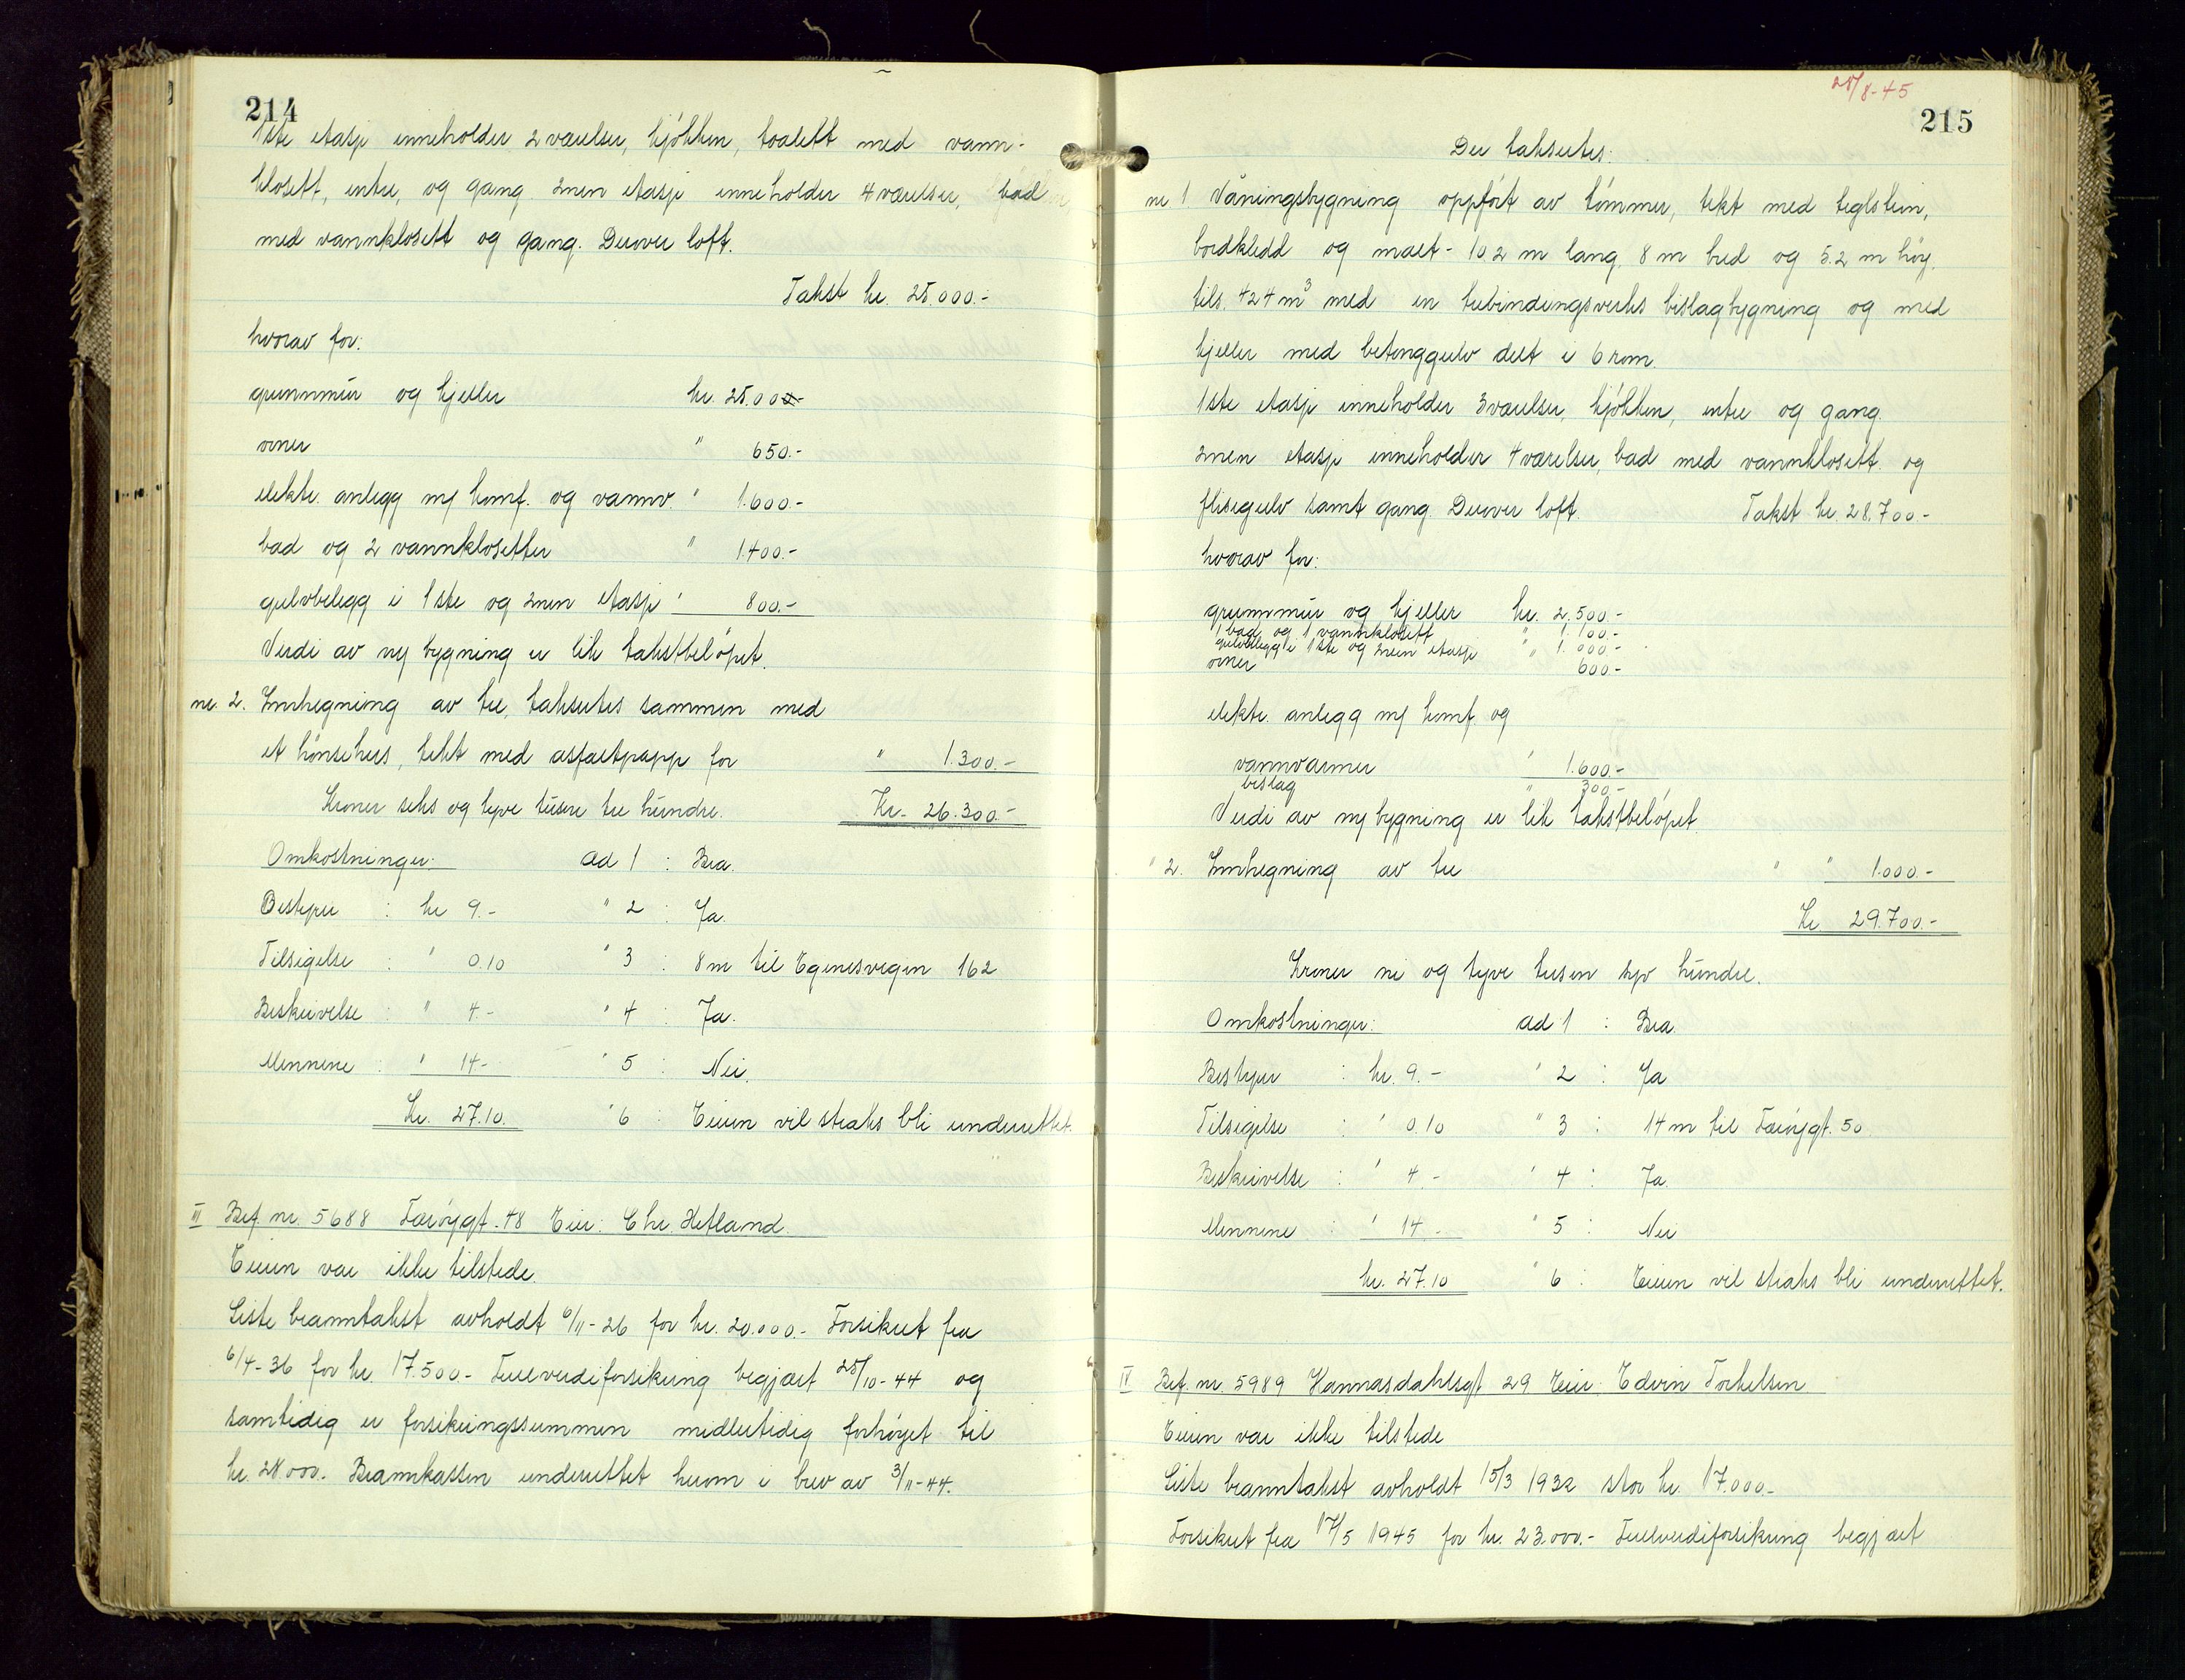 214
1ste etasje inneholder 2 værelser, kjökken, toalett med vann-
klosett, entre, og gang. 2nen etasje inneholder 4 værelser, bad
med vannklosett og gang. Derover loft.
Takst kr. 25.000.-
hvorav for:
grunnmur og kjeller kr. 25.00-
ovner " 650.-
elektr. anlegg m/ komf. og vannv. " 1.600.-
bad og 2 vannklosetter " 1.400.-
gulvbelegg i 1ste og 2nen etasje " 800.-
Verdi av ny bygning er lik takstbelöpet.
nr. 2. Innhegning av tre, takseres sammen med
et hönsehus, tekt med asfaltpapp for " 1.300.-
Kroner seks og tyve tusen tre hundre. Kr. 26.300.-
Omkostninger: ad 1 : Bra.
Bestyrer : kr 9.- " 2 : Ja.
Tilsigelse : " 0.10 " 3 : 8 m til Egenesvegen 162
Beskrivelse : " 4.- " 4 : Ja.
Mennene : " 14- " 5 : Nei.
Kr. 27.10. " 6 : Eieren vil straks bli underrettet.
III Bref. nr. 5688 Færöygt. 48 Eier: Chr. Hetland.
Eieren var ikke tilstede.
Siste branntakst avholdt 6/11-26 for kr. 20.000.- Forsikret fra
6/4-36 for kr. 17.500.- Fullverdiforsikring begjært 25/10-44 og
samtidig er forsikringssummen midlertidig forhöyet til
kr. 28.000.- Brannkassen underrettet herom i brev av 3/11-44.
28/8-45
215
Der takseres:
nr 1 Våningsbygning oppfört av tömmer, tekt med teglstein,
bordkledd og malt- 10.2 m lang, 8 m bred og 5.2 m höy.
tils. 424 m3 med en trebindingsverks bislagbygning og med
kjeller med betonggulv delt i 6 rom.
1ste etasje inneholder 3 værelser, kjökken, entre og gang.
2nen etasje inneholder 4 værelser, bad med vannklosett og
flisegulv samt gang. Derover loft. Takst kr. 28.700.-
hvorav for:
grunnmur og kjeller kr. 2.500.-
1 bad og 1 vannklosett " 1.100.-
gulvbelegg i 1ste og 2nen etasje " 1.000.-
ovner 600.-
elektr. anlegg m/ komf. og
vannvarmer " 1.600.-
bislag " 300.-
Verdi av ny bygning er lik takstbelöpet.
" 2. Innhegning av tre " " 1.000.-
Kr. 29.700.-
Kroner ni og tyve tusen syv hundre.
Omkostninger: ad 1 : Bra.
Bestyrer : kr. 9.- " 2 : Ja
Tilsigelse : " 0.10 " 3 : 14 m til Færöygt. 50
Beskrivelse : " 4.- " 4 : Ja.
Mennene : " 14.- " 5 : Nei
kr. 27.10 " 6 : Eieren vil straks bli underrettet.
IV Bref. nr. 5989 Hannasdahlsgt 29 Eier: Edvin Torkelsen
Eieren var ikke tilstede
Siste branntakst avholdt 15/3 1932 stor kr. 17.000.-
Forsikret fra 17/5 1945 for kr. 23.000.- Fullverdiforsikring begjært